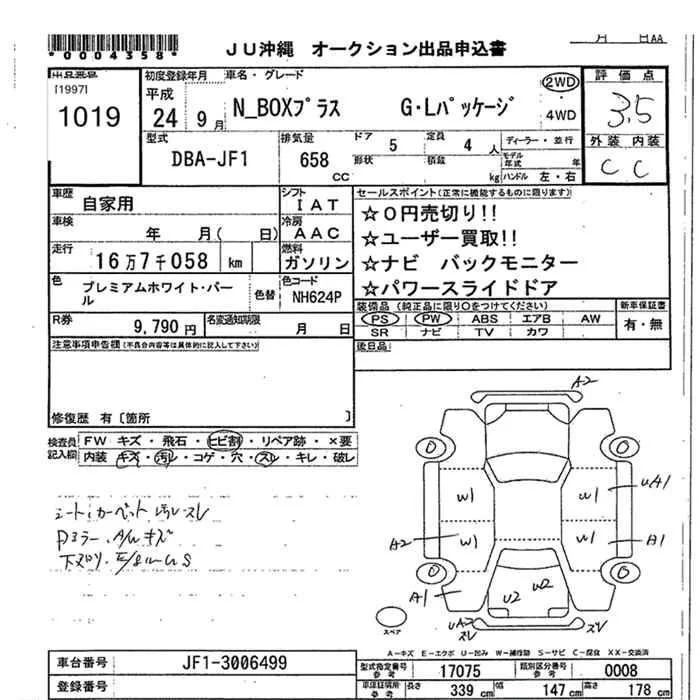 *0004358*
JU沖縄 オークション出品申込書
月 日AA
[1997]
1019
初度登録年月
平成
24 9月
車名・グレード
N_BOXプラス G・Lパッケージ
2WD
・
4WD
評価点
3.5
型式
DBA-JF1
排気量
658
CC
ドア 5
定員 4 人
形状
積載 kg
ディーラー・並行
モデル年式 年
ハンドル 左・右
外装 内装
C C
車歴 自家用
シフト IAT
車検 年 月( 日)
冷房 AAC
走行 16万7千058 km
燃料 ガソリン
色 プレミアムホワイト・パール
色替
色コード NH624P
セールスポイント(正常に機能するものに限ります)
☆0円売切り!!
☆ユーザー買取!!
☆ナビ バックモニター
☆パワースライドドア
R券 9,790円
名変通知期限 月 日
装備品(純正品に限り○をつけてください)
PS PW ABS エアB AW
SR ナビ TV カワ
新車保証書
有・無
注意事項申告欄(不具合内容等は具体的に記入して下さい)
後日品
修復歴 有〔箇所 〕
検査員記入欄
FW キズ・飛石・ヒビ割・リペア跡・×要
内装 キズ・汚れ・コゲ・穴・スレ・キレ・破レ
シート、カーペット汚レスレ
A2
0 0
W1 W1 UA1
A2 W1 W1 B1
0 0
A1 U2 W2
UA2
スレ
スレ
スペア
A－キズ E－エクボ U－凹み W－補修跡 S－サビ C－腐食 XX－交換済
車台番号 JF1-3006499
登録番号
型式指定番号 17075
類別区分番号 0008
車庫証明用参考
長さ 339 cm
幅 147 cm
高さ 178 cm